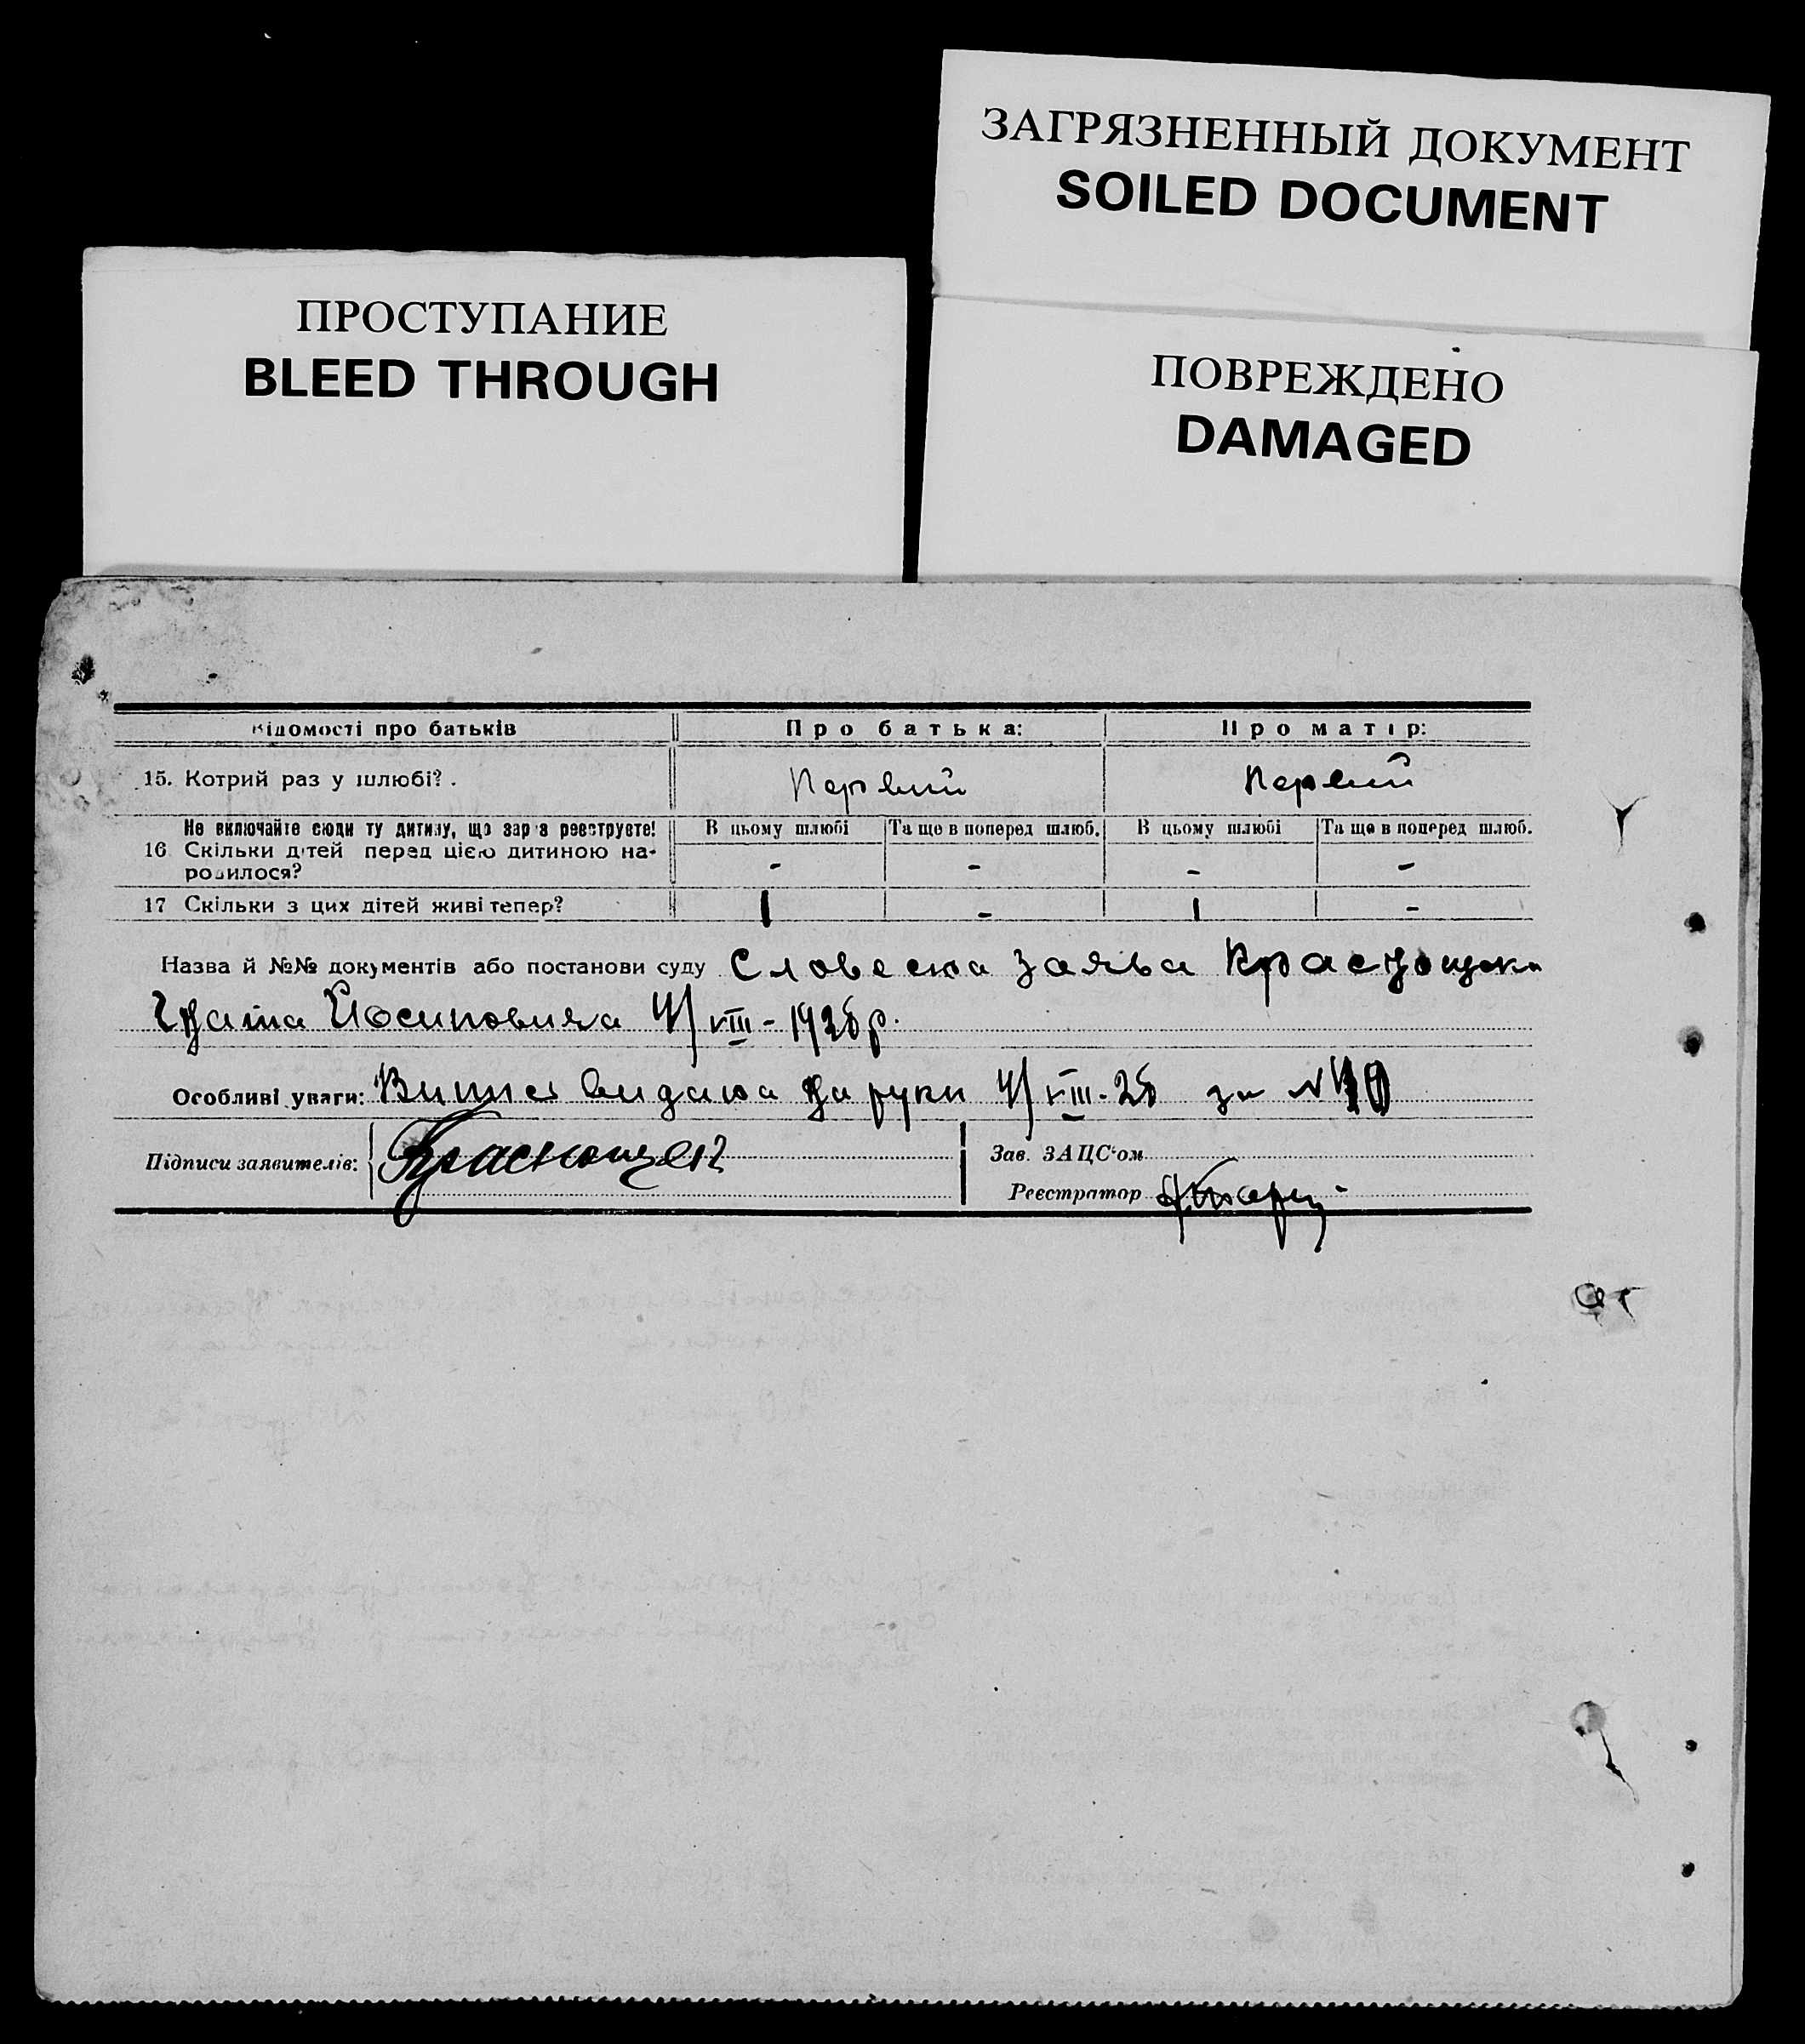 ЗАГРЯЗНЕННЫЙ ДОКУМЕНТ
SOILED DOCUMENT
ПРОСТУПАНИЕ
BLEED THROUGH
ПОВРЕЖДЕНО
DAMAGED
Відомості про батьків Про батька: Про матір:
15. Котрий раз у шлюбі? . Первий Первий
Не включайте сюди ту дитину, що зараз реєструєте! В цьому шлюбі Та ще в поперед шлюб. В цьому шлюбі Та ще в поперед шлюб.
16 Скільки дітей перед цією дитиною на-
родилося? - - - -
17 Скільки з цих дітей живі тепер? 1 - 1 -
Назва й №№ документів або постанови суду Словесна заява
Йосиповича 4/VIII-1926р.
Особливі уваги: видана на руки 4/VIII-26 за N
Підписи заявителів: Зав. ЗАЦС'ом
Реєстратор